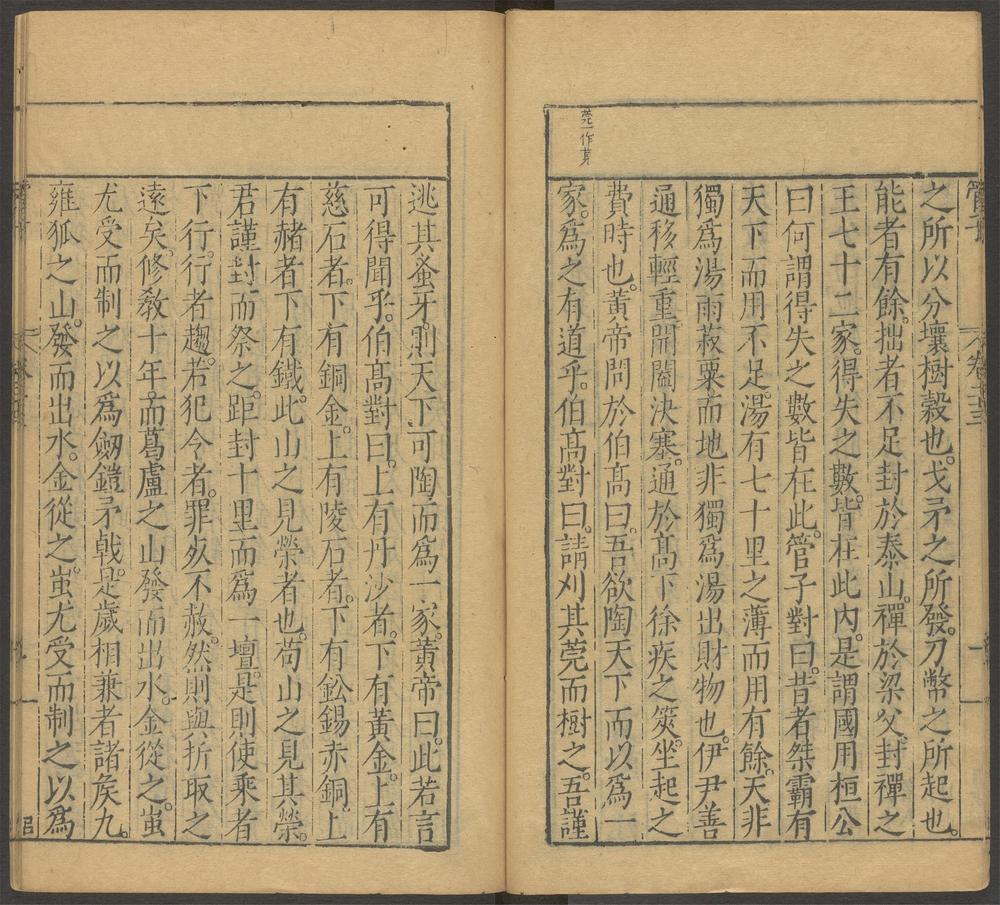 管子
卷二十三
莞一作箕
之所以分壤樹穀也。戈矛之所發。刀幣之所起也。
能者有餘。拙者不足封於泰山。禪於梁父。封禪之
王七十二家。得失之數。皆在此內。是謂國用桓公
曰何謂得失之數皆在此。管子對曰。昔者桀霸有
天下而用不足。湯有七十里之薄而用有餘。天非
獨爲湯雨菽粟而地非獨爲湯出財物也。伊尹善
通移輕重。開闔決塞。通於高下徐疾之筴。坐起之
費時也。黃帝問於伯髙曰。吾欲陶天下而以爲一
家。爲之有道乎。伯髙對曰。請刈其莞而樹之。吾謹
逃其蚤牙。則天下可陶而爲一家。黃帝曰。此若言
可得聞乎。伯髙對曰。上有丹沙者。下有黃金。上有
慈石者。下有銅金。上有陵石者。下有鈆錫赤銅。上
有赭者下有鐵。此山之見榮者也。苟山之見其榮。
君謹封而祭之。距封十里而爲一壇。是則使乘者
下行。行者趨。若犯令者。罪死不赦。然則與折取之
遠矣。修教十年。而葛盧之山發而出水。金從之。蚩
尤受而制之以爲劔鎧矛戟。是歲相兼者諸矦九。
雍狐之山。發而出水。金從之。蚩尤受而制之以爲